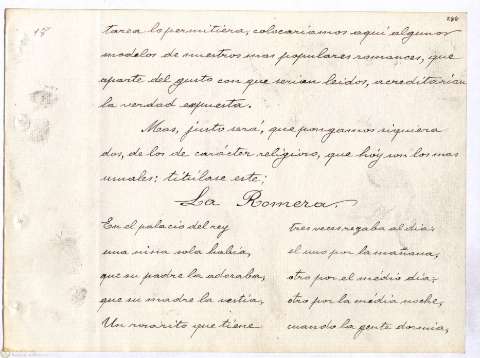 286
15
tarea lo permitiera, colocaríamos aquí algunos
modelos de nuestros mas populares romances, que
aparte del gusto con que serian leidos, acreditarian
la verdad expuesta.
Mas, justo será, que pongamos siquiera
dos, de los de carácter religioso, que hoy son los mas
usuales; titúlase este:
La Romera.
En el palacio del rey
una niña sola había,
que su padre la adoraba,
que su madre la vestía,
Un rosarito que tiene
tres veces rezaba al día:
el uno por la mañana,
otro por el médio dia,
otro por la média noche,
cuando la gente dormia,